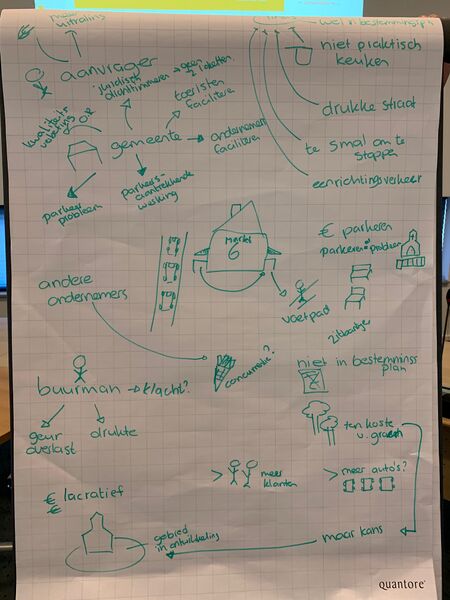 meer
aanvrager
juridisch
dichttimmeren
geen
2 loketten
toeristen
faciliteren
gemeente
ondernemers
faciliteren
parkeer
probleem
parkeers-
aantrekkende
werking
wel in bestemmingspl
niet praktisch
keuken
drukke straat
te smal om te
stoppen
eenrichtingsverkeer
€ parkeren
parkeren = probleem
Markt
6
voetpad
zitbankjes
andere
ondernemers
concurrentie?
niet in bestemmings
plan
buurman → klacht?
geur
overlast
drukte
ten koste
v. groen
> meer
klanten
> meer auto's?
€ lacratief
€
gebied
in ontwikkeling
maar kans
quantore